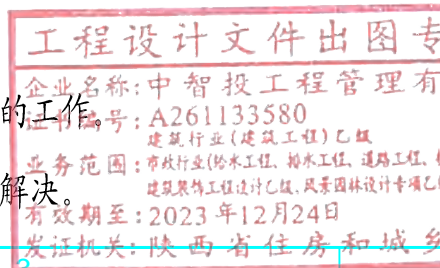 工程设计文件出图专
企业名称:中智投工程管理有
的工作。
证书编号:A261133580
建筑行业(建筑工程)乙级
业务范围:市政行业(给水工程、排水工程、道路工程、
建筑装饰工程设计乙级、风景园林设计专项乙
解决。
有效期至:2023年12月24日
发证机关:陕西省住房和城乡